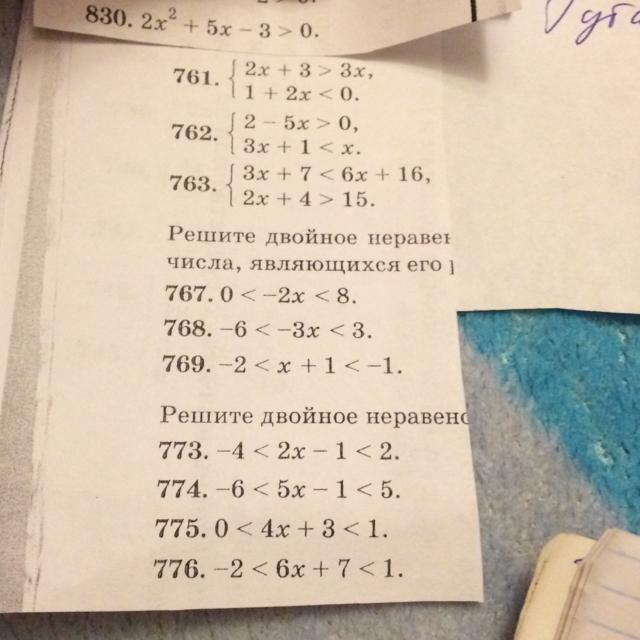 830. 2x² + 5x − 3 > 0.
761. { 2x + 3 > 3x,
1 + 2x < 0.
762. { 2 − 5x > 0,
3x + 1 < x.
763. { 3x + 7 < 6x + 16,
2x + 4 > 15.
Решите двойное
числа, являющихся его
767. 0 < −2x < 8.
768. −6 < −3x < 3.
769. −2 < x + 1 < −1.
Решите двойное
773. −4 < 2x − 1 < 2.
774. −6 < 5x − 1 < 5.
775. 0 < 4x + 3 < 1.
776. −2 < 6x + 7 < 1.